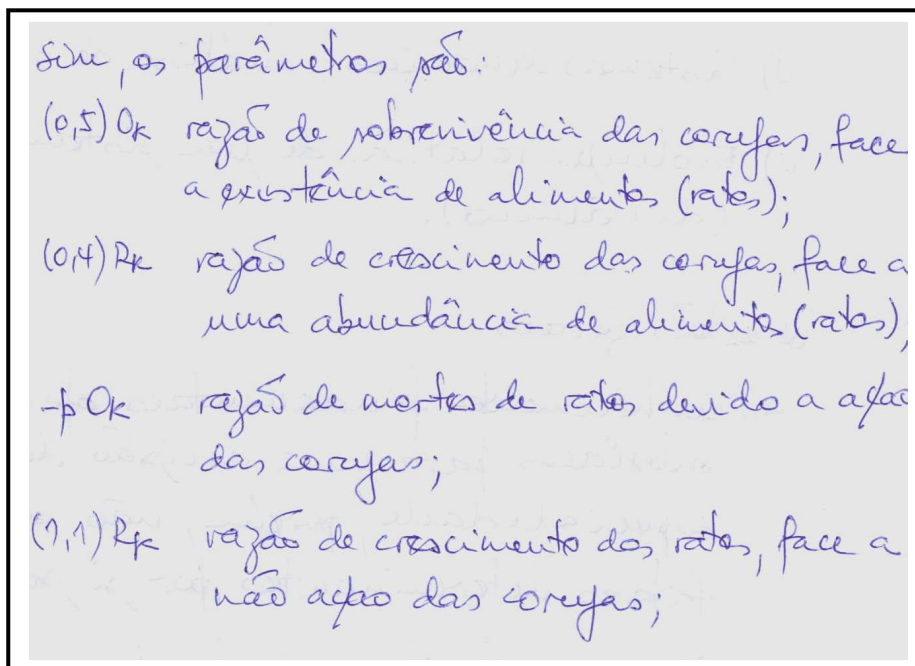 Sim, os parâmetros são:
(0,5) Oₖ razão de sobrevivência das corujas, face
a existência de alimentos (ratos);
(0,4) Rₖ razão de crescimento das corujas, face a
uma abundância de alimentos (ratos);
-p Oₖ razão de mortes de ratos devido a ação
das corujas;
(1,1) Rₖ razão de crescimento dos ratos, face a
não ação das corujas;